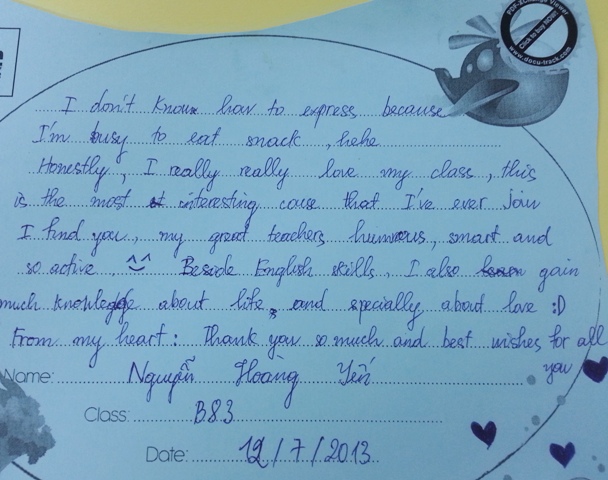 I don't know how to express because
I'm busy to eat snack, hehe
Honestly, I really really love my class, this
is the most interesting couse that I've ever join
I find you, my great teachers humorous, smart and
so active ^^ Beside English skills, I also gain
much knowledge about life, and specially about love :D
From my heart: Thank you so much and best wishes for all
you
Name: Nguyễn Hoàng Yến
Class: B83
Date: 12/7/2013
Click to buy NOW!
www.docu-track.com